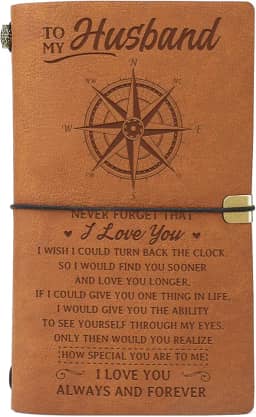 TO MY Husband
NEVER FORGET THAT
I Love You
I WISH I COULD TURN BACK THE CLOCK.
SO I WOULD FIND YOU SOONER
AND LOVE YOU LONGER.
IF I COULD GIVE YOU ONE THING IN LIFE.
I WOULD GIVE YOU THE ABILITY
TO SEE YOURSELF THROUGH MY EYES.
ONLY THEN WOULD YOU REALIZE
HOW SPECIAL YOU ARE TO ME!
I LOVE YOU
ALWAYS AND FOREVER